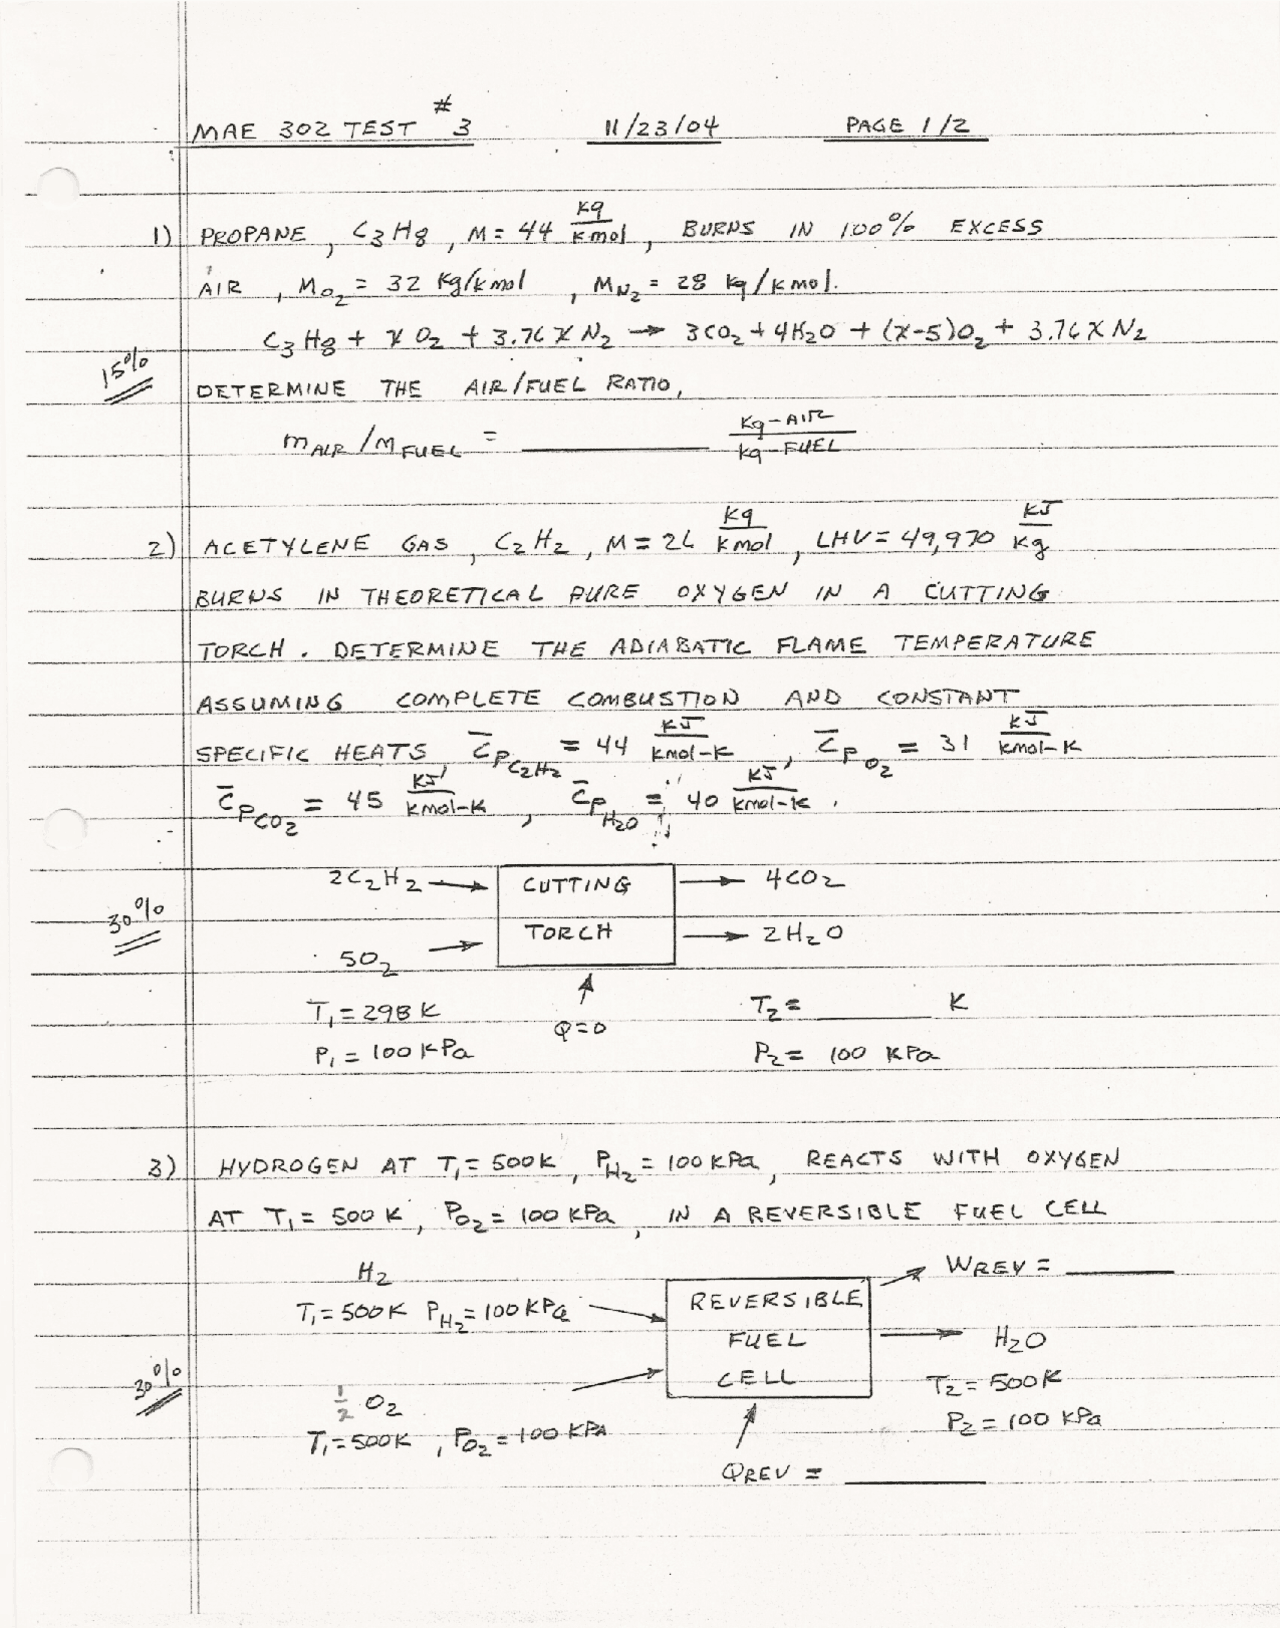 MAE 302 TEST #3 11/23/04 PAGE 1/2
1) PROPANE, C3H8, M = 44 Kg/Kmol, BURNS IN 100% EXCESS
AIR, MO2 = 32 Kg/Kmol, MN2 = 28 Kg/Kmol.
C3H8 + XO2 + 3.76XN2 → 3CO2 + 4H2O + (X-5)O2 + 3.76XN2
15%
DETERMINE THE AIR/FUEL RATIO,
mAIR/MFUEL = ________ Kg-AIR/Kg-FUEL
2) ACETYLENE GAS, C2H2, M = 26 Kg/Kmol, LHV = 49,970 KJ/Kg
BURNS IN THEORETICAL PURE OXYGEN IN A CUTTING
TORCH. DETERMINE THE ADIABATIC FLAME TEMPERATURE
ASSUMING COMPLETE COMBUSTION AND CONSTANT
SPECIFIC HEATS, C̄PC2H2 = 44 KJ/Kmol-K, C̄PO2 = 31 KJ/Kmol-K
C̄PCO2 = 45 KJ/Kmol-K, C̄PH2O = 40 KJ/Kmol-K.
2C2H2 → CUTTING → 4CO2
30%
5O2 → TORCH → 2H2O
T1 = 298 K Q = 0 T2 = ________ K
P1 = 100 KPa P2 = 100 KPa
3) HYDROGEN AT T1 = 500K, PH2 = 100 KPa, REACTS WITH OXYGEN
AT T1 = 500 K, PO2 = 100 KPa, IN A REVERSIBLE FUEL CELL
H2 WREV = ________
T1 = 500K PH2 = 100 KPa → REVERSIBLE
FUEL → H2O
CELL T2 = 500K
30%
1/2 O2 P2 = 100 KPa
T1 = 500K, PO2 = 100 KPa
QREV = ________